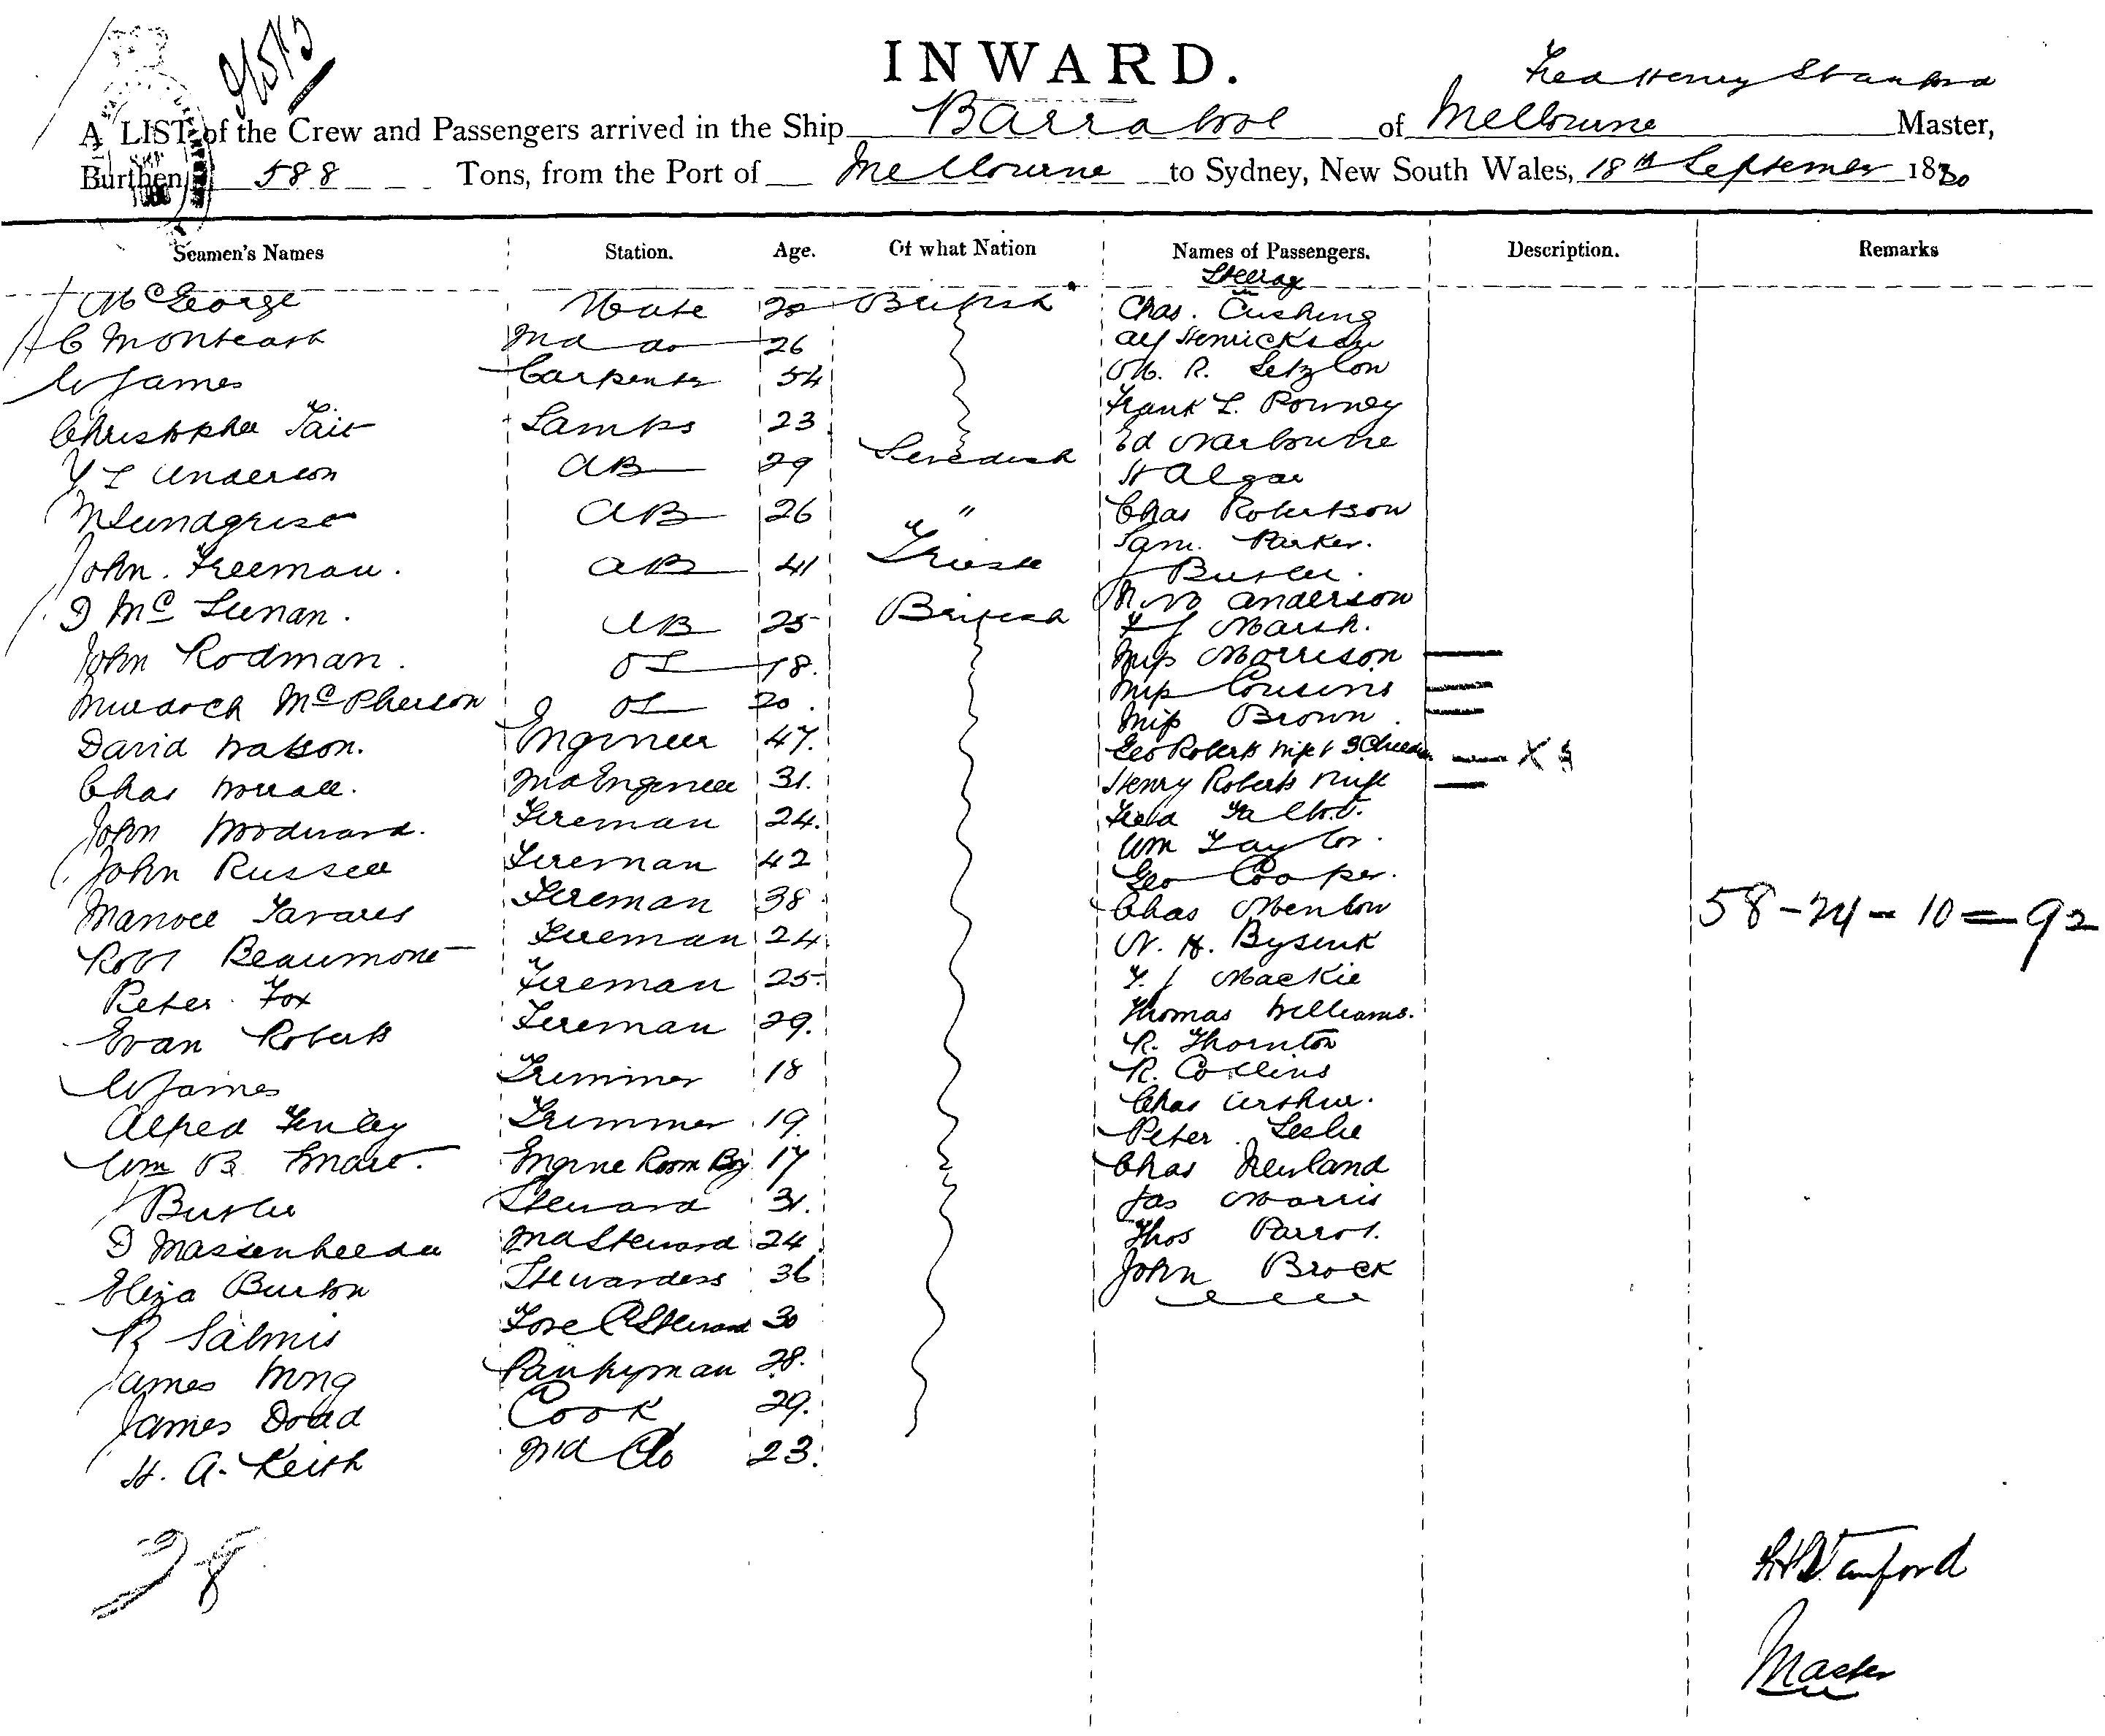 INWARD.
Fred Henry Stanford
A LIST of the Crew and Passengers arrived in the Ship Barrabool of Melbourne Master,
Burthen 588 Tons, from the Port of Melbourne to Sydney, New South Wales, 18th September 18
Seamen's Names Station. Age. Of what Nation Names of Passengers. Description. Remarks
McGeorge Mate British Chas. Cushing
C Monteath 2nd do 26 Alf Henrickson
W James Carpenter 54 R.
Christopher Tait Lamps 23 Frank L. Powney
Anderson AB 29 Swedish Ed Narbourne
AB 26 " H Algar
John Freeman. AB 41 Trieste Chas Robertson
D McLunan. AB 25 British Sam. Parker.
John Rodman. OS 18. J Butler.
Murdoch McPherson OS 20. Anderson
David Watson. Engineer 47. J Marsh.
Chas 2nd Engineer 31. Miss Morrison
John Woodward. Fireman 24. Miss Cousins
John Russell Fireman 42 Miss Brown
Manoel Tavares Fireman 38 Geo Roberts Wife & 3 Children X
Robt Beaumont Fireman 24 Henry Roberts Wife
Peter Fox Fireman 25 Fred Talbot.
Evan Roberts Fireman 29. Wm Taylor.
W James Trimmer 18 Geo Cooper.
Alfred Fenley Trimmer 19. Chas Menlow
Wm B. Smart. Engine Room Boy 17 N. H.
Butler Steward 31. Mackie
D 2nd Steward 24 Thomas Williams.
Eliza Burton Stewardess 36 R. Thornton
R Fore C Steward 30 R. Collins
James Wong Pantryman 28. Chas Arthur.
James Dodd Cook 29. Peter Leslie
H. A. Keith 2nd Do 23. Chas Newland
Jas Morris
Thos Parrot.
John Brock
58-24-10=92
28
F H Stanford
Master